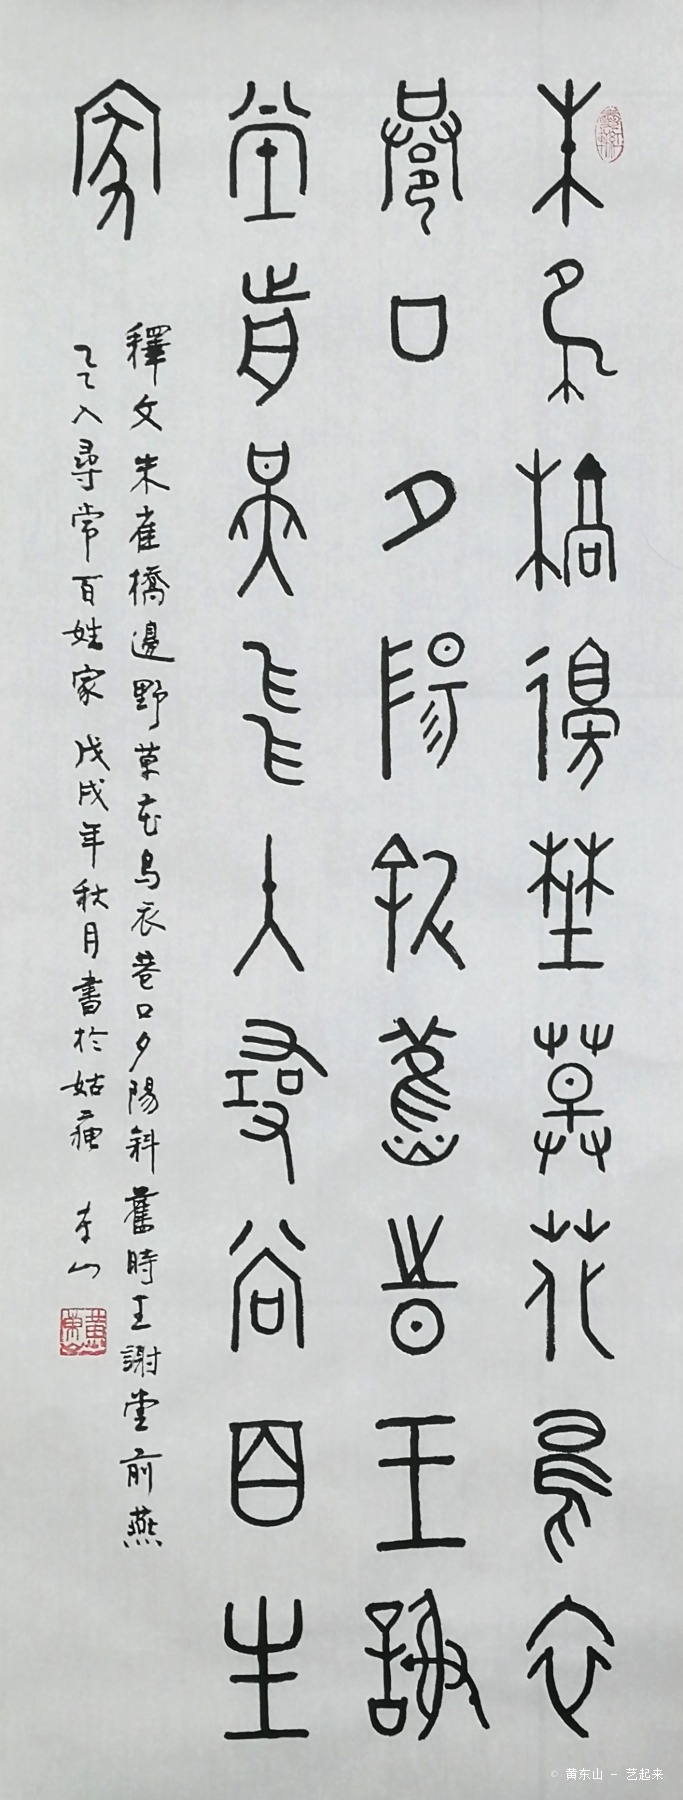 朱雀橋邊野草花烏衣
巷口夕陽斜舊時王謝
堂前燕飛入尋常百姓
家
釋文朱雀橋邊野草花烏衣巷口夕陽斜舊時王謝堂前燕
飛入尋常百姓家戊戌年秋月書於姑蘇 东山
黄東山
© 黄东山 - 艺起来